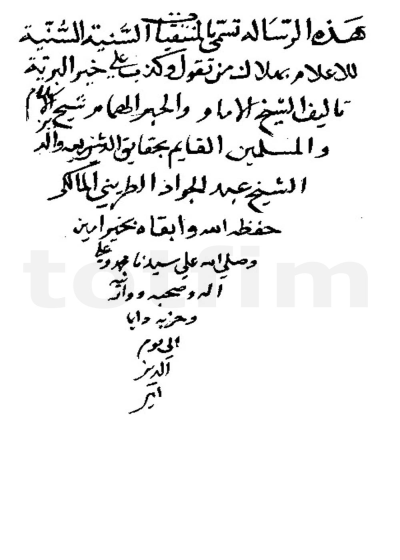 هذه الرسالة تسمى بالمنتقيات السنية السنية
للاعلام بهلاك من تقول وكذب على خير البرية
تاليف الشيخ الامام والحبر الهمام شيخ الاسلام
والمسلمين القايم بحقايق الدين والد
الشيخ عبد الجواد الطريني المالكي
حفظه الله وابقاه بخير امين
وصلي الله علي سيدنا محمد وعلي
اله وصحبه ووارثيه
وحزبه دايما
الي يوم
الدين
امين
torfim